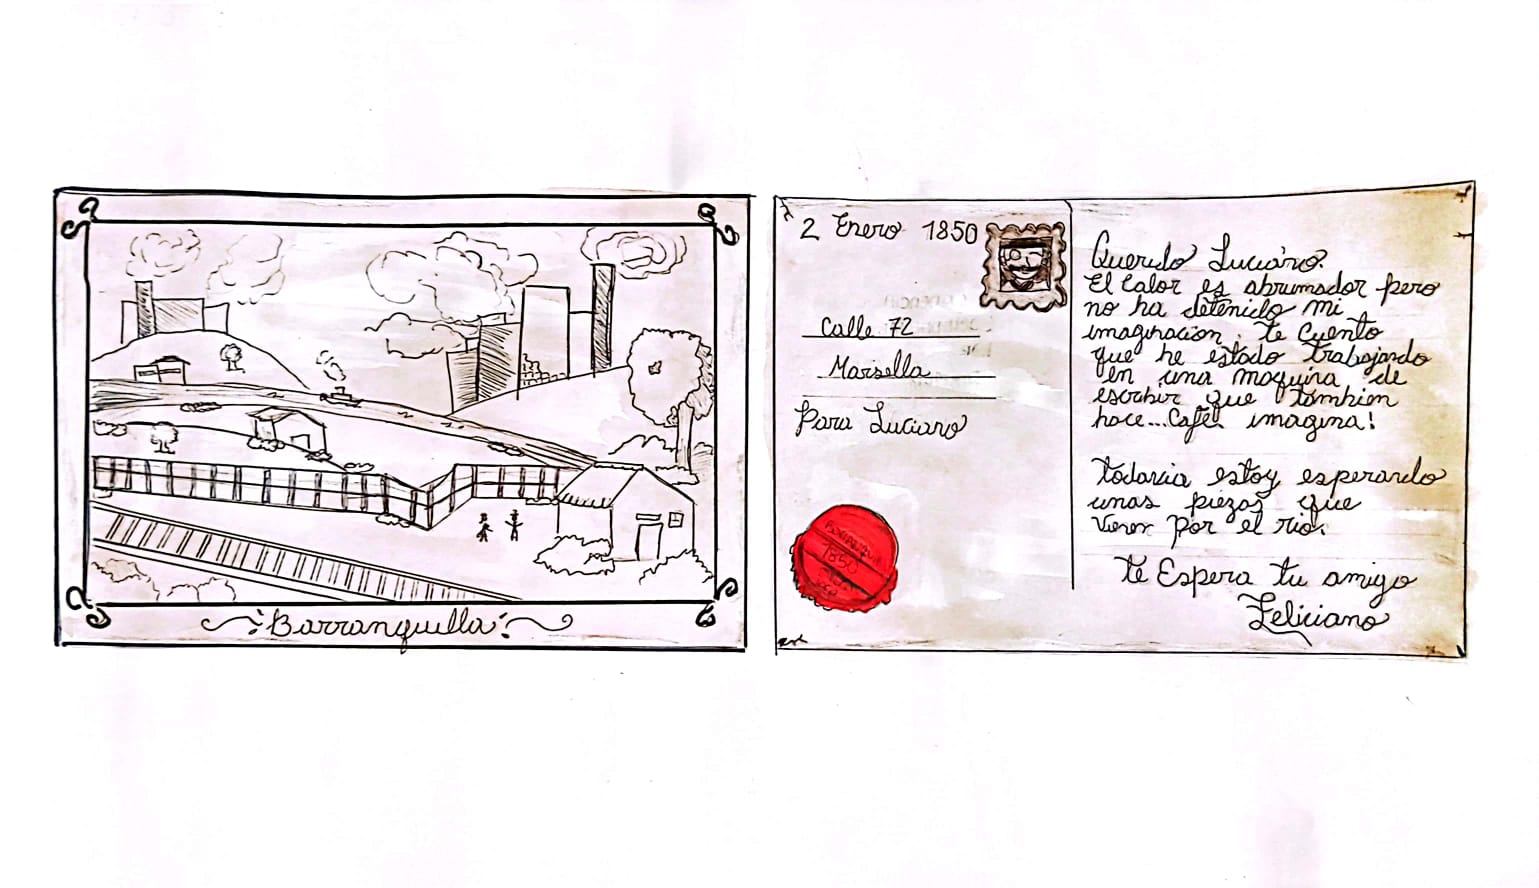 Barranquilla
2 Enero 1850
Calle 72
Marsella
Para Luciano
1850
Querido Luciano.
El Calor es abrumador pero
no ha detenido mi
imaginacion, te Cuento
que he estado trabajando
en una maquina de
escribir que tambien
hace... Cafe! imagina!
todavia estoy esperando
unas piezas que
vienen por el rio.
te Espera tu amigo
Feliciano